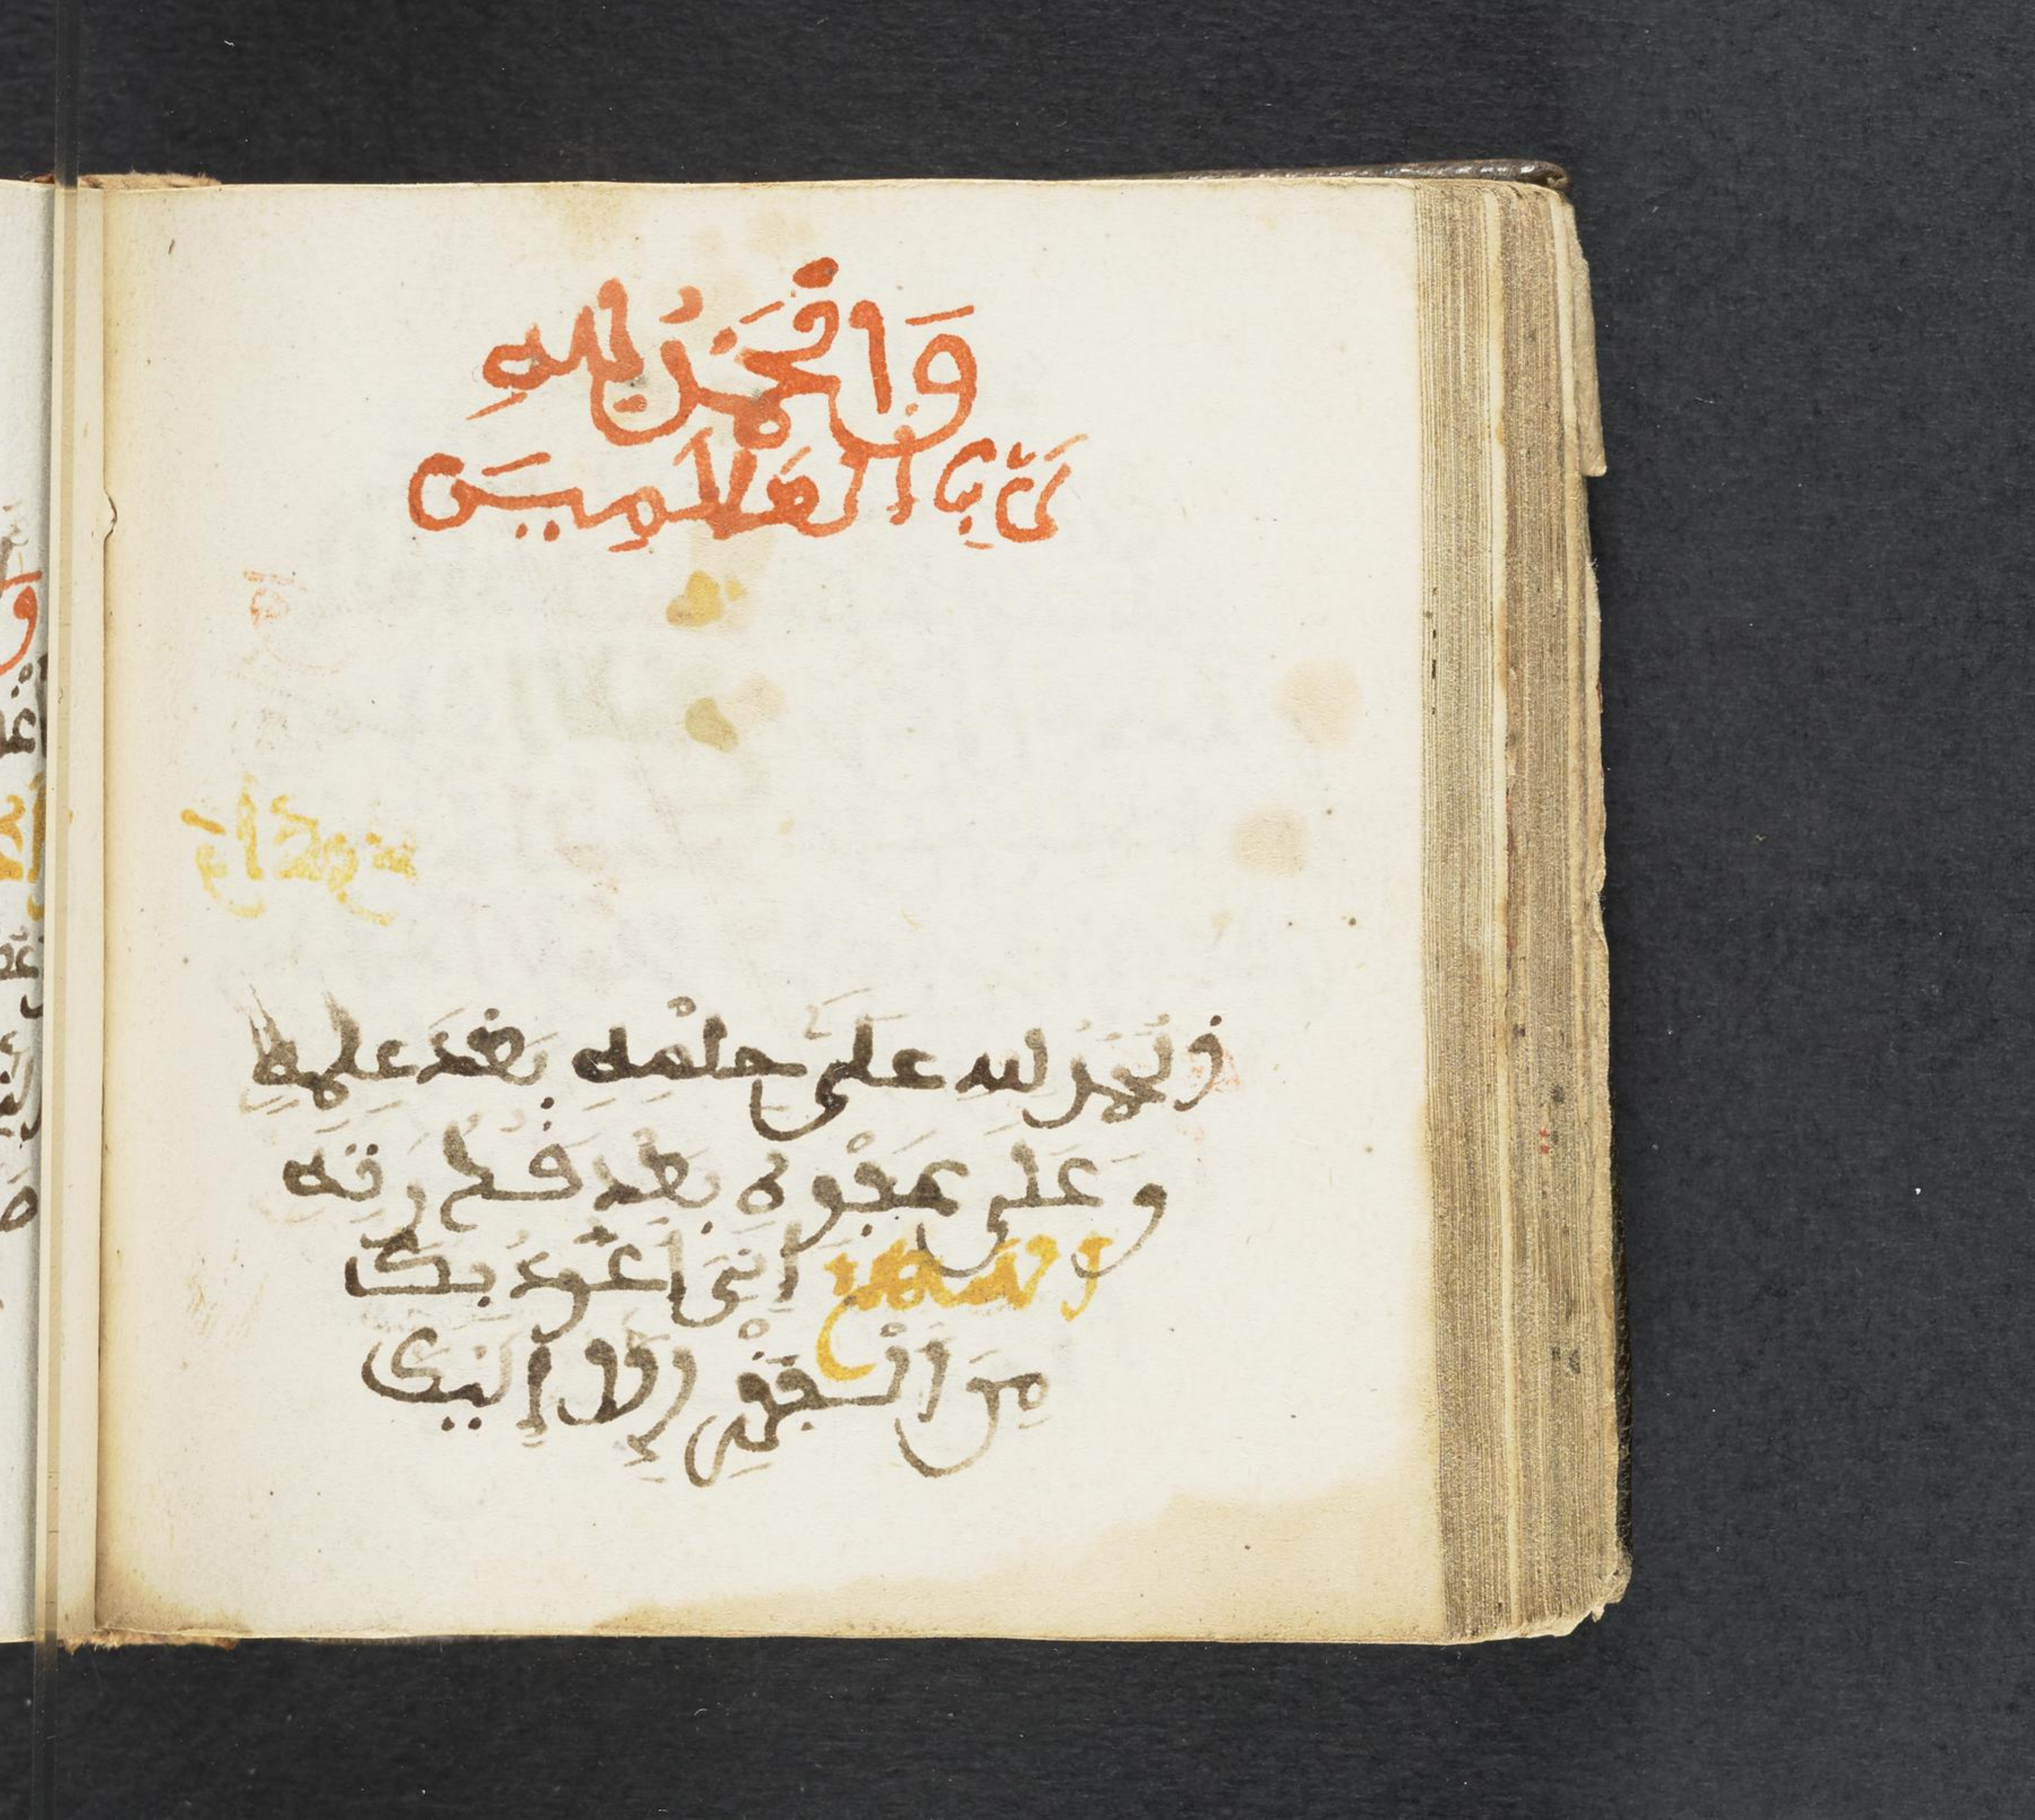 وَالْحَمْدُ لِلهِ
رَبِّ الْعَالَمِينَ
وَالْحَمْدُ لله عَلَى حِلْمِهِ بَعْدَ عِلْمِهِ
وَعَلَى عَفْوِهِ بَعْدَ قُدْرَتِهِ
اللهم اِنِّي أَعُوذُ بِكَ
مِنَ الْفَقْرِ إِلَّا إِلَيْكَ